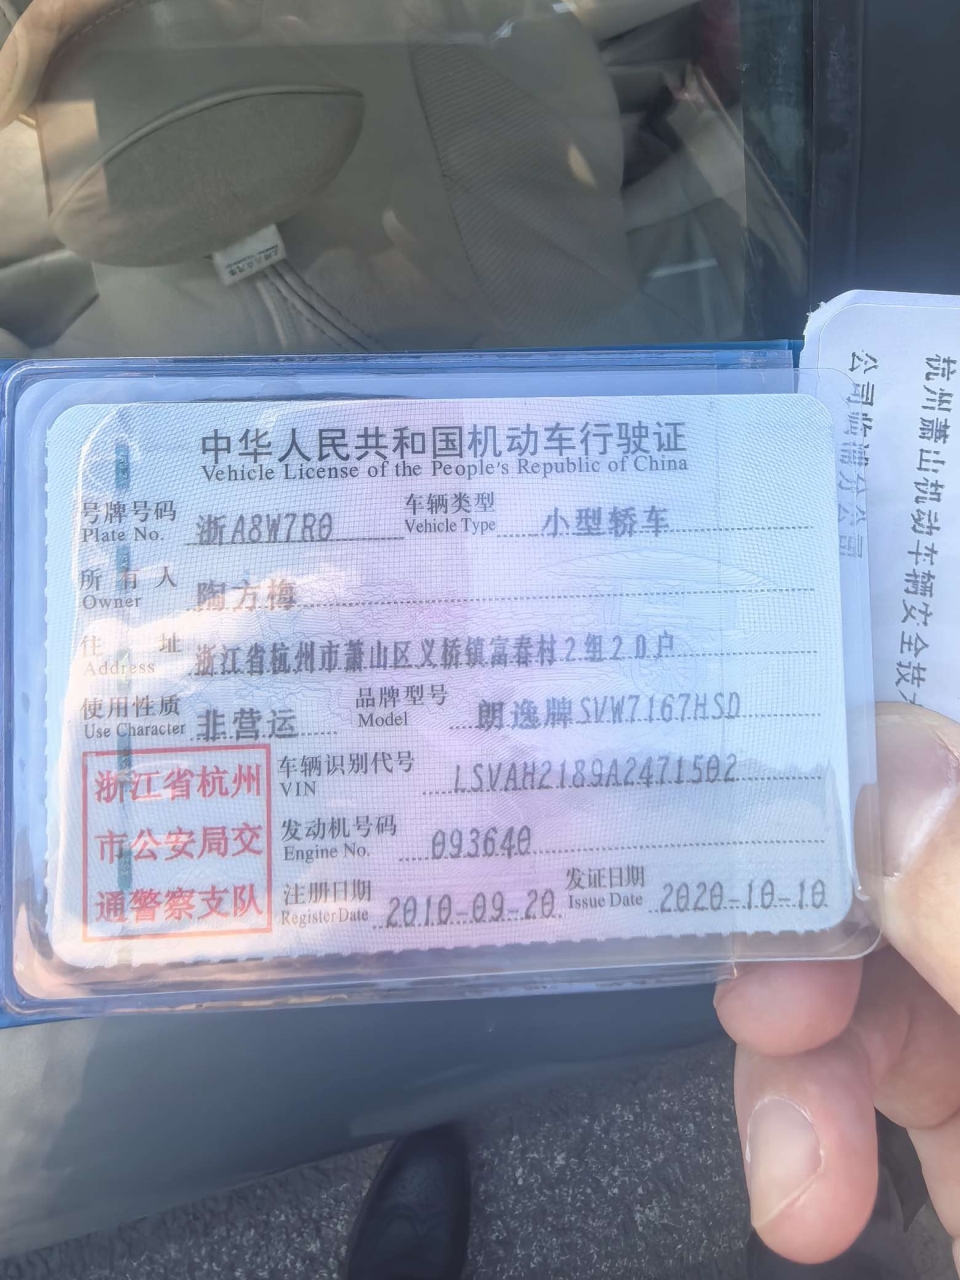 中华人民共和国机动车行驶证
Vehicle License of the People's Republic of China
号牌号码 浙A8W7R0 车辆类型 小型轿车
Plate No. Vehicle Type
所有人 陶方梅
Owner
住址 浙江省杭州市萧山区义桥镇富春村2组20户
Address
使用性质 非营运 品牌型号 朗逸牌SVW7167HSD
Use Character Model
浙江省杭州
市公安局交
通警察支队
车辆识别代号 LSVAH2189A2471502
VIN
发动机号码 093640
Engine No.
注册日期 2010-09-20 发证日期 2020-10-10
Register Date Issue Date
杭州萧山机动车辆安全技
公司临浦分公司